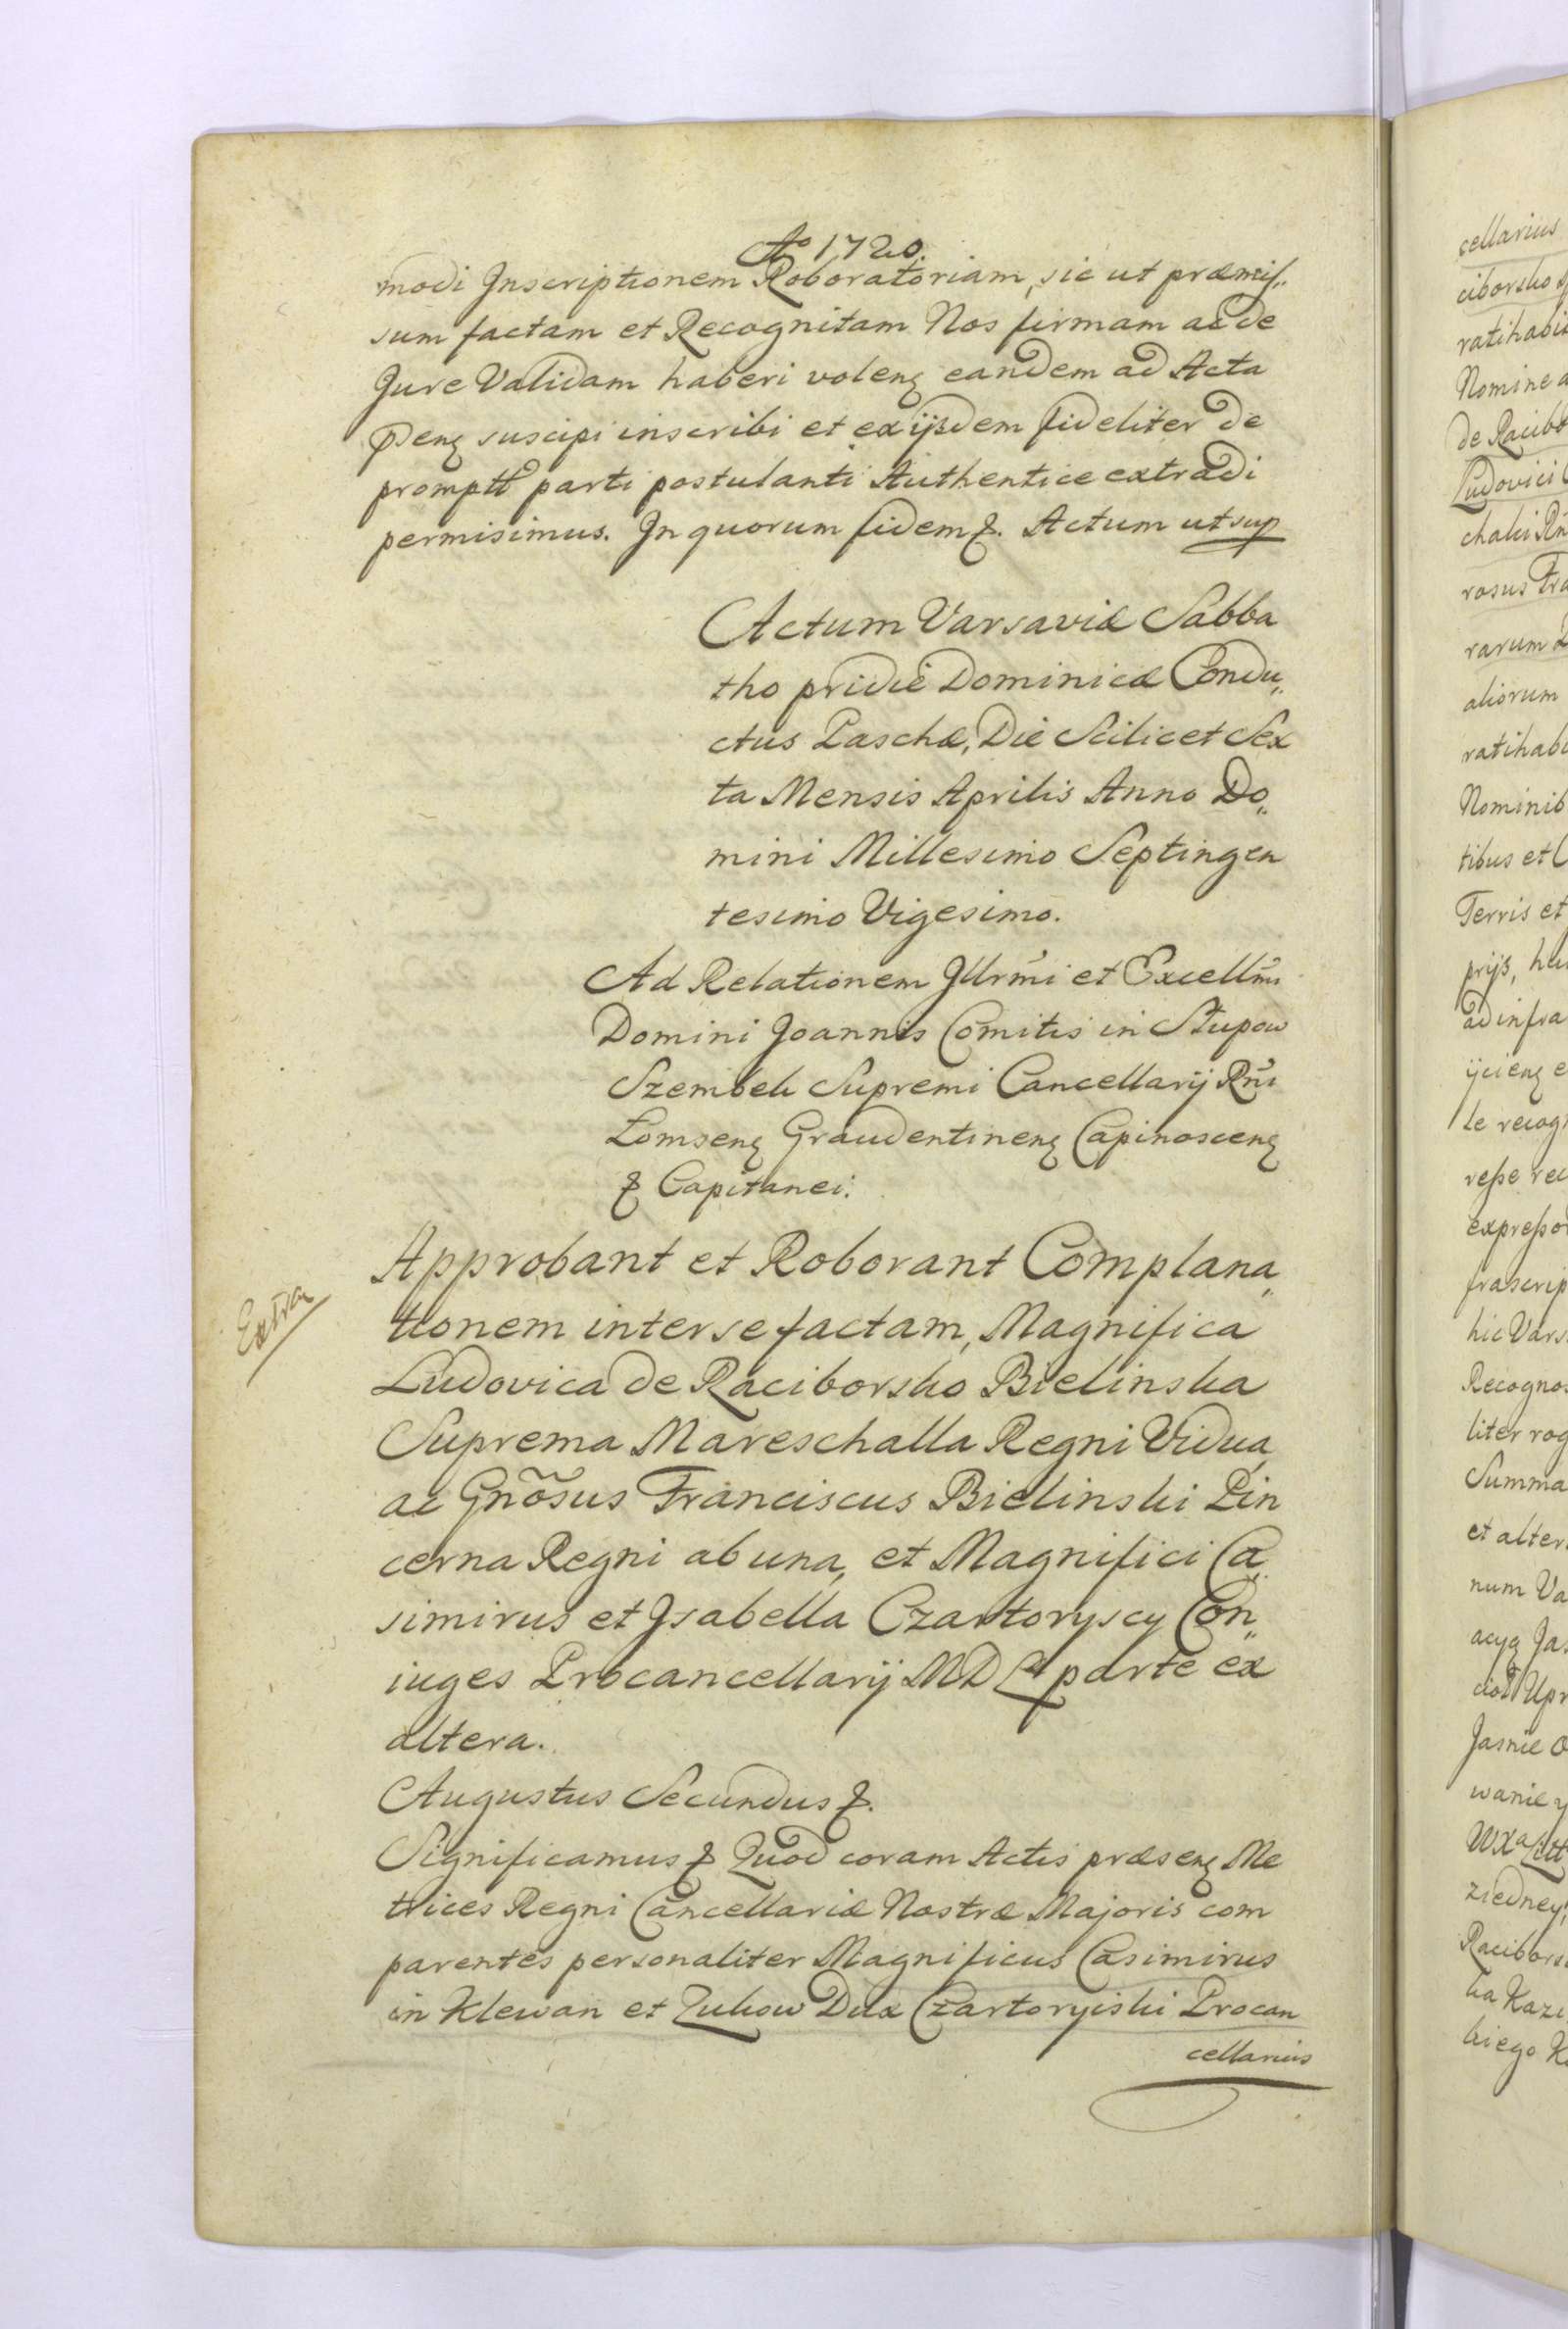 Aº 1720.
modi Inscriptionem Roboratoriam, sic ut præmis„
sum factam et Recognitam Nos firmam ac de
Jure Validam haberi volenꝫ eandem ad Acta
pñsenꝫ suscipi inscribi et ex ijsdem fideliter de
promptt parti postulanti Authentice extradi
permisimus. In quorum fidem &. Actum ut sup
Actum Varsaviæ Sabba
tho pridie Dominicæ Condu„
ctus Paschæ, Die Scilicet Sex
ta Mensis Aprilis Anno Do„
mini Millesimo Septingen
tesimo Vigesimo.
Ad Relationem Illrmi et Excellmi
Domini Joannis Comitis in Słupow
Szembek Supremi Cancellarij Rni
Łomsenꝫ Graudentinenꝫ Capinoscenꝫ
& Capitanei.
Extra
Approbant et Roborant Complana„
tionem inter se factam, Magnifica
Ludovica de Raciborsko Bielinska
Suprema Mareschalla Regni Vidua,
ac Gnõsus Franciscus Bielinski Pin
cerna Regni ab una, et Magnifici Ca„
simirus et Isabella Czartoryscy Con„
iuges Procancellarij MDL parte ex
altera.
Augustus Secundus &.
Significamus & Quod coram Actis præsenꝫ Me
trices Regni Cancellariæ Nostræ Majoris com
parentes personaliter Magnificus Casimirus
in Klewan et Zukow Dux Czartoryiski Procan
cellarius
cellarius
ciborsko
Nomine
de Racibo
Ludovici
rarum
aliorum
Nominib
tibus et
Terris et
prijs,
ad infra
le recog
frascrip
hic Vars
Recognos
liter rog
Summa
et alter
num Va
Jasnie O
wanie y
ziedney
Raciborsk
ka Kazi
kiego